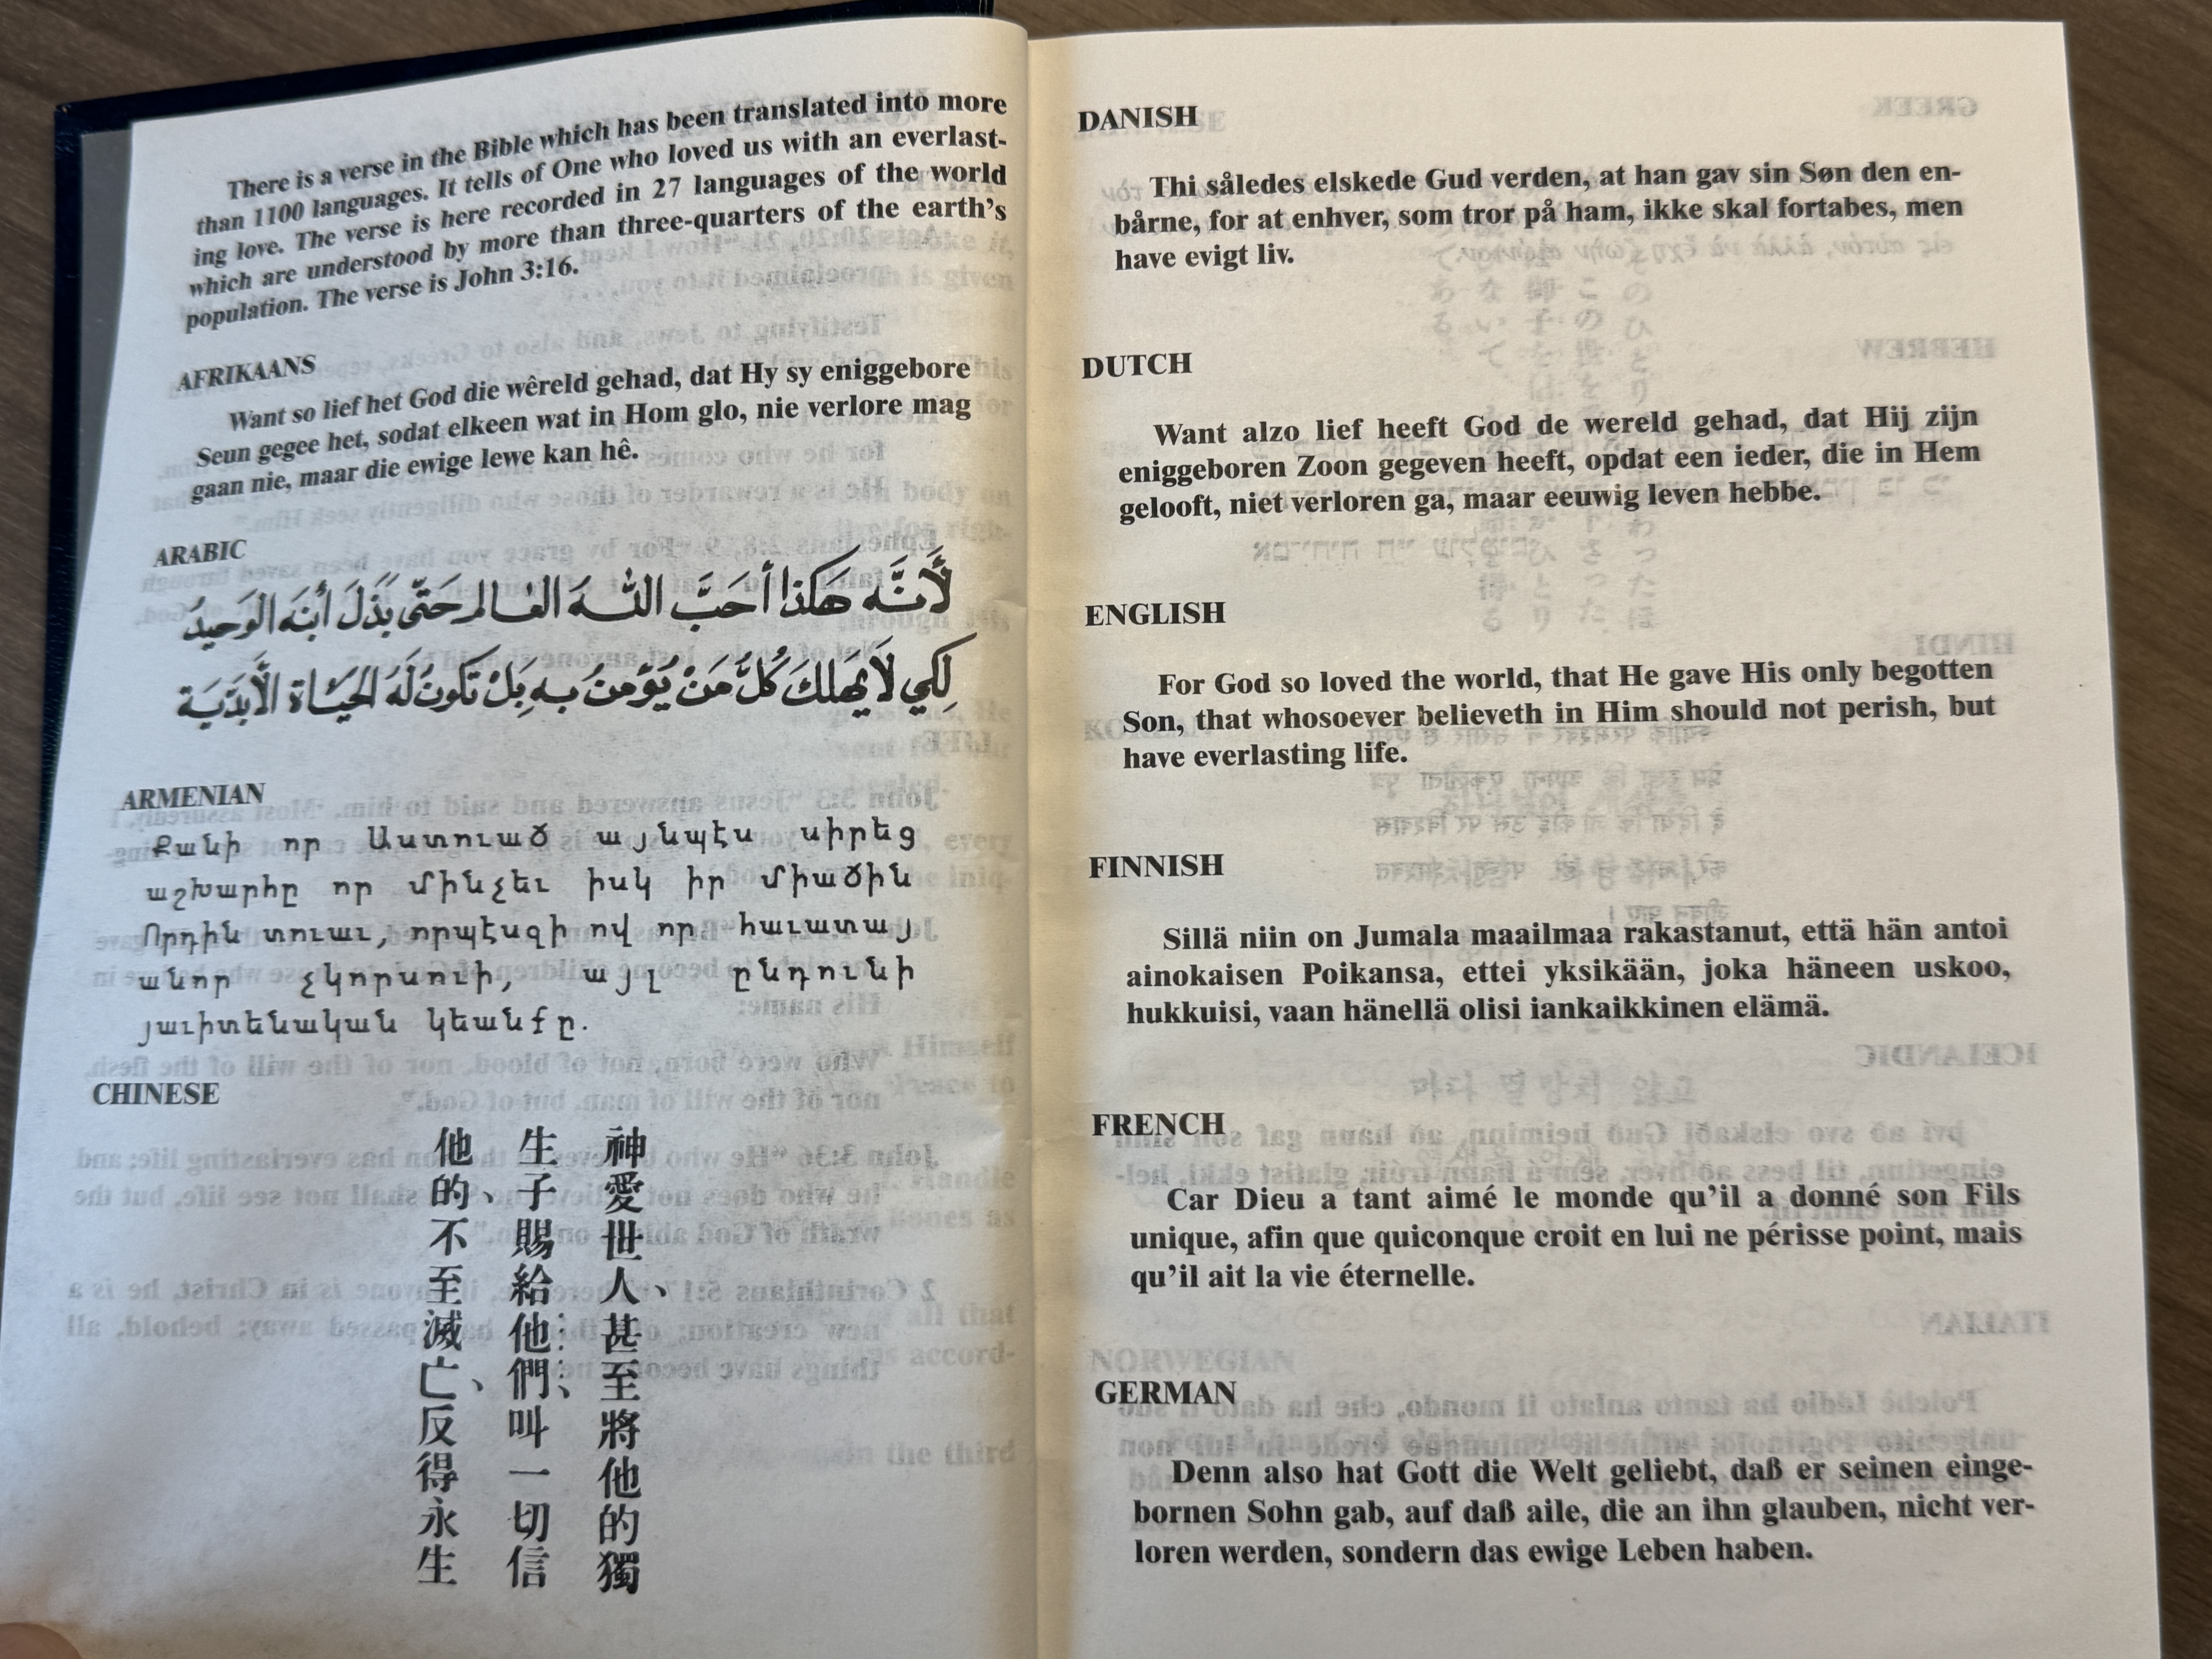 There is a verse in the Bible which has been translated into more
than 1100 languages. It tells of One who loved us with an everlast-
ing love. The verse is here recorded in 27 languages of the world
which are understood by more than three-quarters of the earth's
population. The verse is John 3:16.
AFRIKAANS
Want so lief het God die wêreld gehad, dat Hy sy eniggebore
Seun gegee het, sodat elkeen wat in Hom glo, nie verlore mag
gaan nie, maar die ewige lewe kan hê.
ARABIC
لأَنَّه هَكَذا أحَبَّ اللهَ العَالم حَتّى بَذَلَ أبْنَه الوَحيدُ
لِكَي لَا يَهلكَ كُلُّ مَنْ يُؤمنُ بِهِ بَلْ تَكونُ لَهُ الحَيَاة الأَبَدَّيَة
ARMENIAN
Քանի որ Աստուած այնպէս սիրեց
աշխարհը որ մինչեւ իսկ իր միածին
Որդին տուաւ, որպէսզի ով որ հաւատայ
անոր չկորսուի, այլ ընդունի
յաւիտենական կեանքը.
CHINESE
神愛世人、甚至將他的獨
生子賜給他們、叫一切信
他的、不至滅亡、反得永生
DANISH
Thi således elskede Gud verden, at han gav sin Søn den en-
bårne, for at enhver, som tror på ham, ikke skal fortabes, men
have evigt liv.
DUTCH
Want alzo lief heeft God de wereld gehad, dat Hij zijn
eniggeboren Zoon gegeven heeft, opdat een ieder, die in Hem
gelooft, niet verloren ga, maar eeuwig leven hebbe.
ENGLISH
For God so loved the world, that He gave His only begotten
Son, that whosoever believeth in Him should not perish, but
have everlasting life.
FINNISH
Sillä niin on Jumala maailmaa rakastanut, että hän antoi
ainokaisen Poikansa, ettei yksikään, joka häneen uskoo,
hukkuisi, vaan hänellä olisi iankaikkinen elämä.
FRENCH
Car Dieu a tant aimé le monde qu'il a donné son Fils
unique, afin que quiconque croit en lui ne périsse point, mais
qu'il ait la vie éternelle.
GERMAN
Denn also hat Gott die Welt geliebt, daß er seinen einge-
bornen Sohn gab, auf daß aile, die an ihn glauben, nicht ver-
loren werden, sondern das ewige Leben haben.